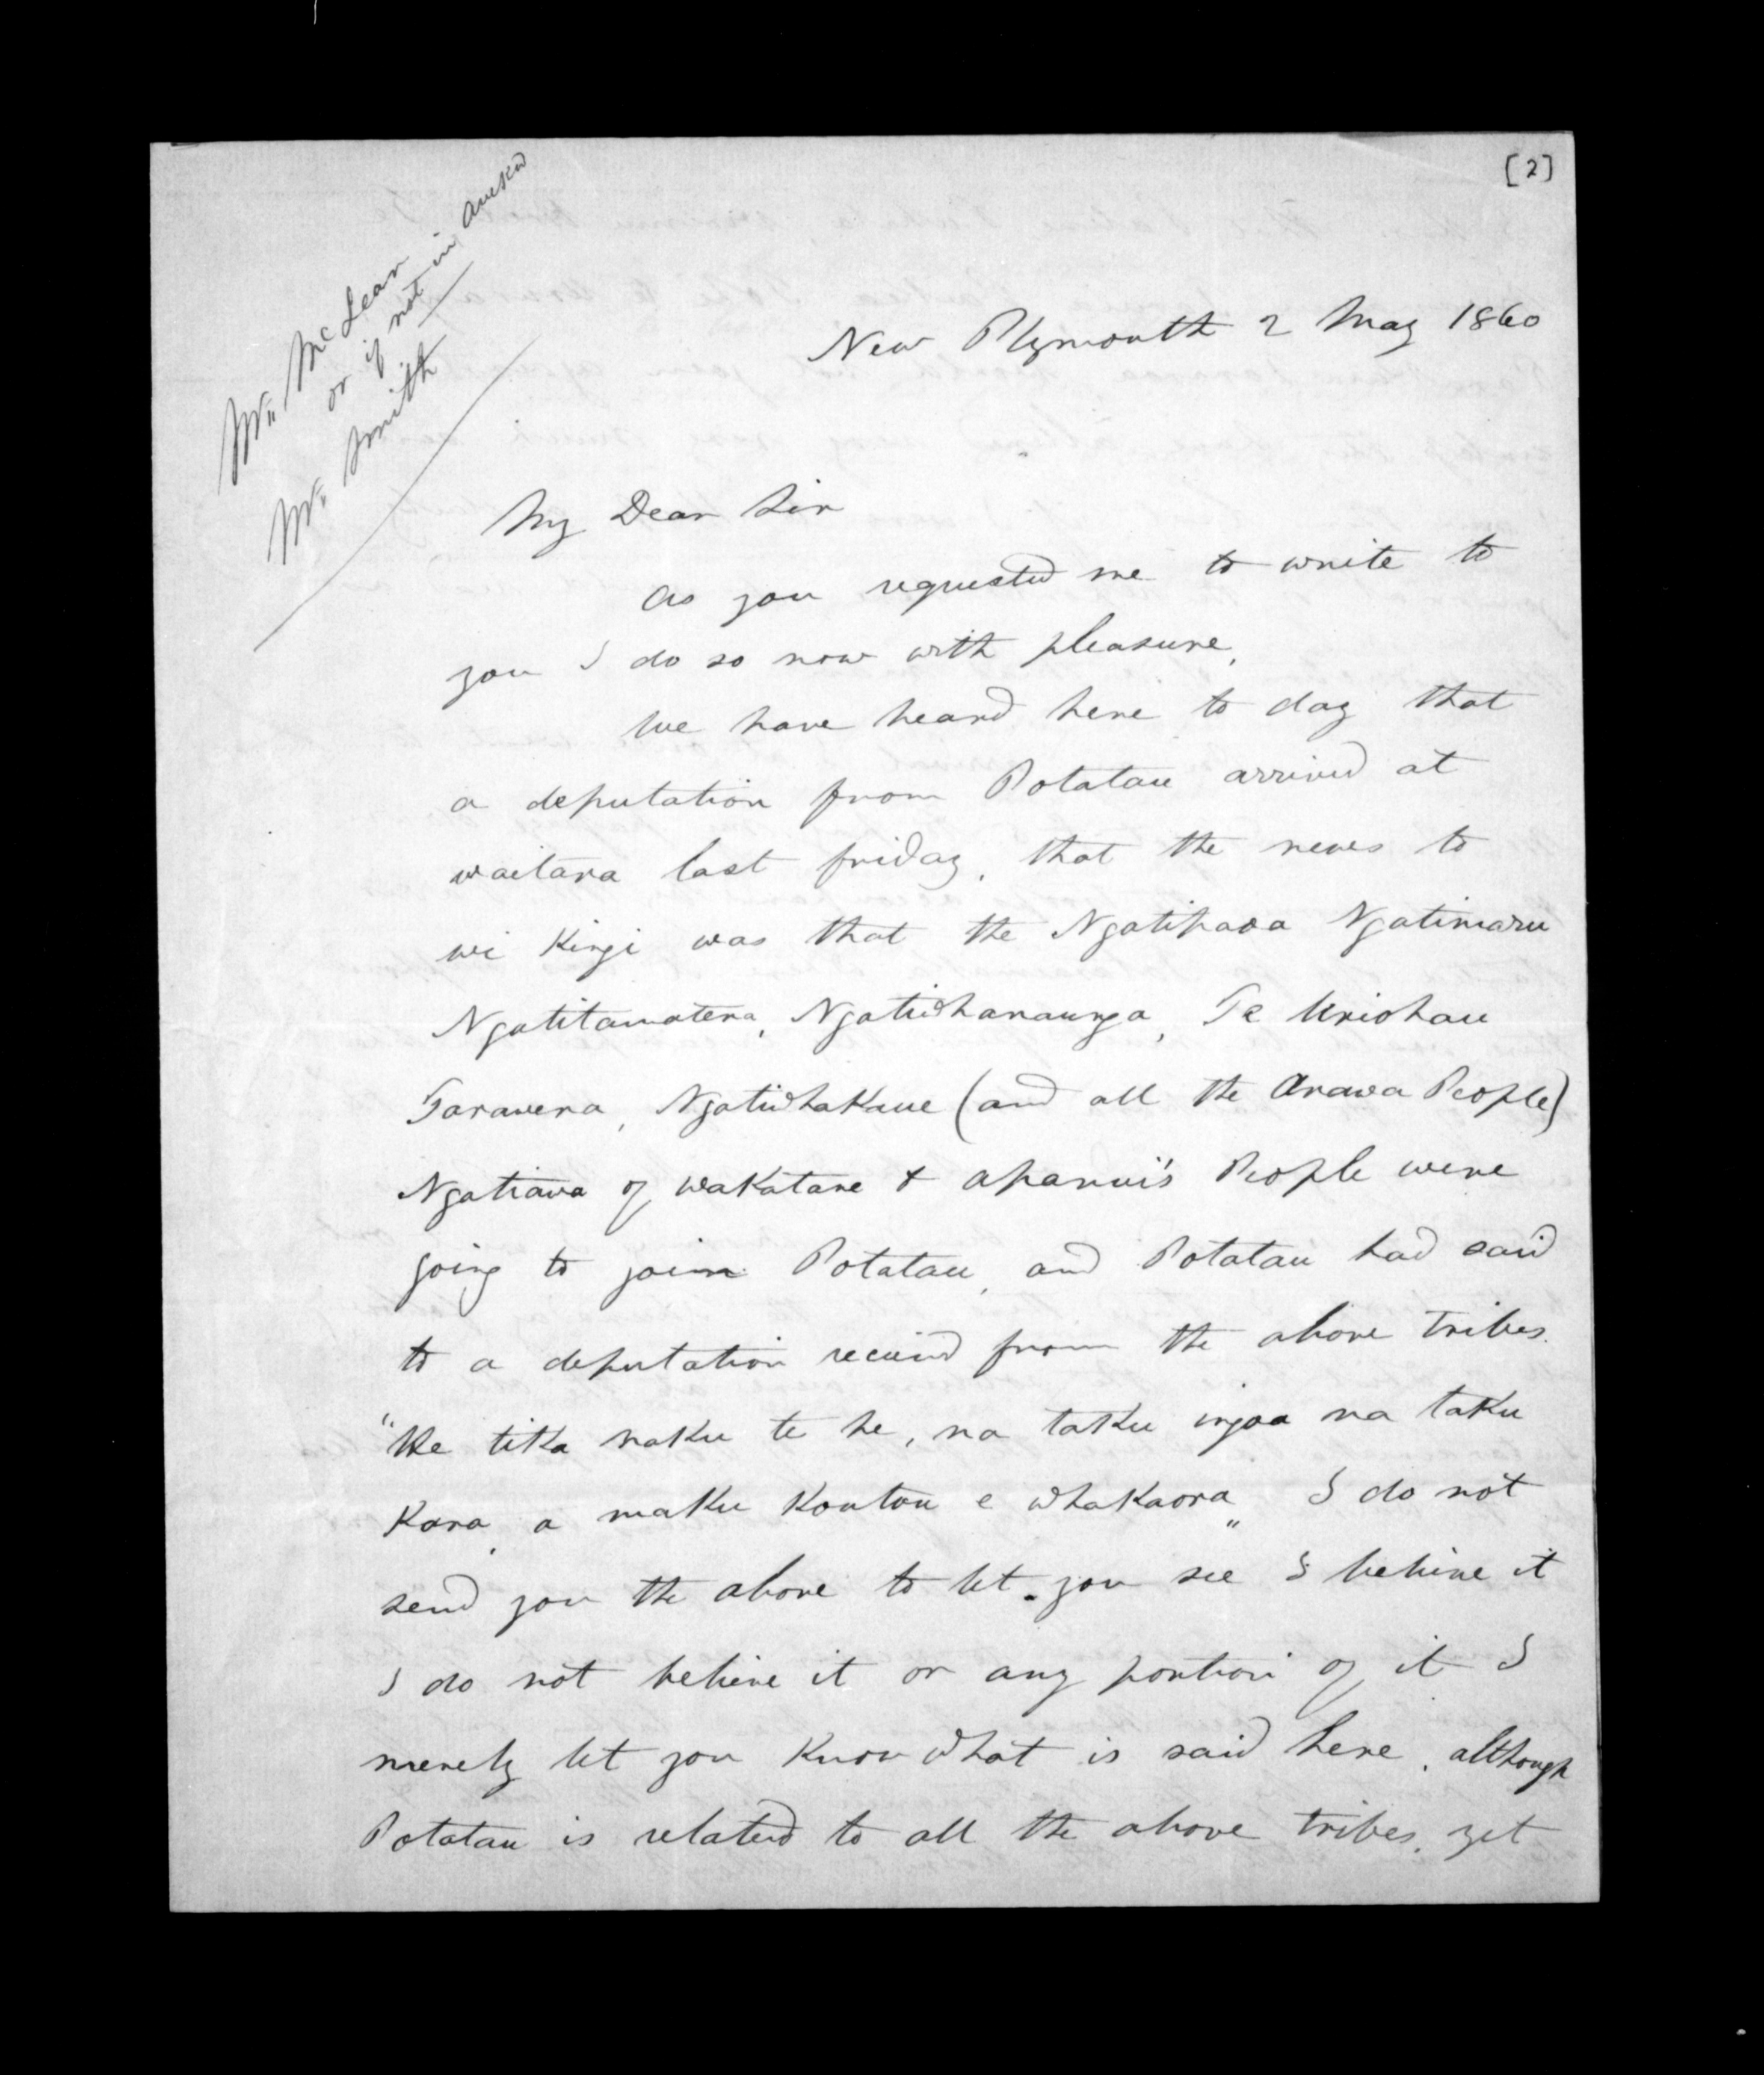 [2]
Mr. McLean
or if not in Auckd
Mr. Smith
New Plymouth 2 May 1860
My Dear Sir
As you requested me to write to
you I do so now with pleasure,
We have heard here to day that
a deputation from Potatau arrived at
waitara last friday, that the news to
wi Kingi was that the Ngatipaoa Ngatimaru
Ngatitamatera, Ngatiwhanaunga, Te Uriohau
Tarawera, Ngatiwhakaue (and all the Arawa People)
Ngatiawa of Wakatane & apanui's People were
going to join Potatau, and Potatau had said
to a deputation received from the above tribes.
"Ke tika naku te he, na taku ingoa na taku
Kara, a maku Koutou e whakaora" I do not
send you the above to let you see I believe it
I do not believe it or any portion of it I
merely let you Know what is said here, although
Potatau is related to all the above tribes, yet